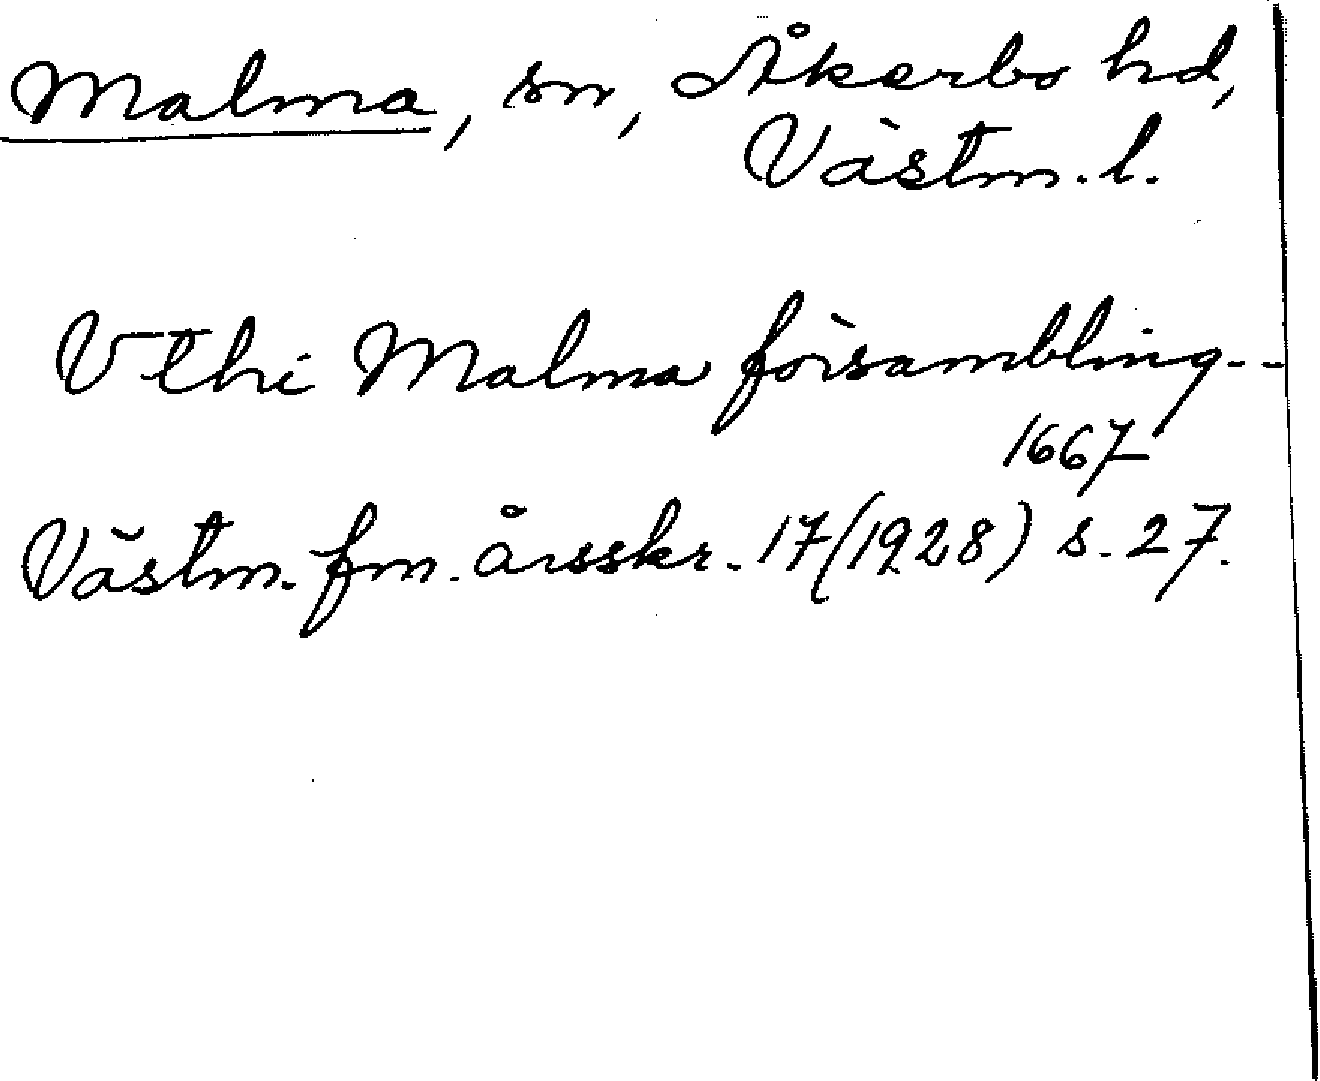 Malma, sn, Åkerbo hd,
Västm. l.
Vthi Malma försambling - -
1667
Västm. fm. årsskr. 17 (1928) s. 27.